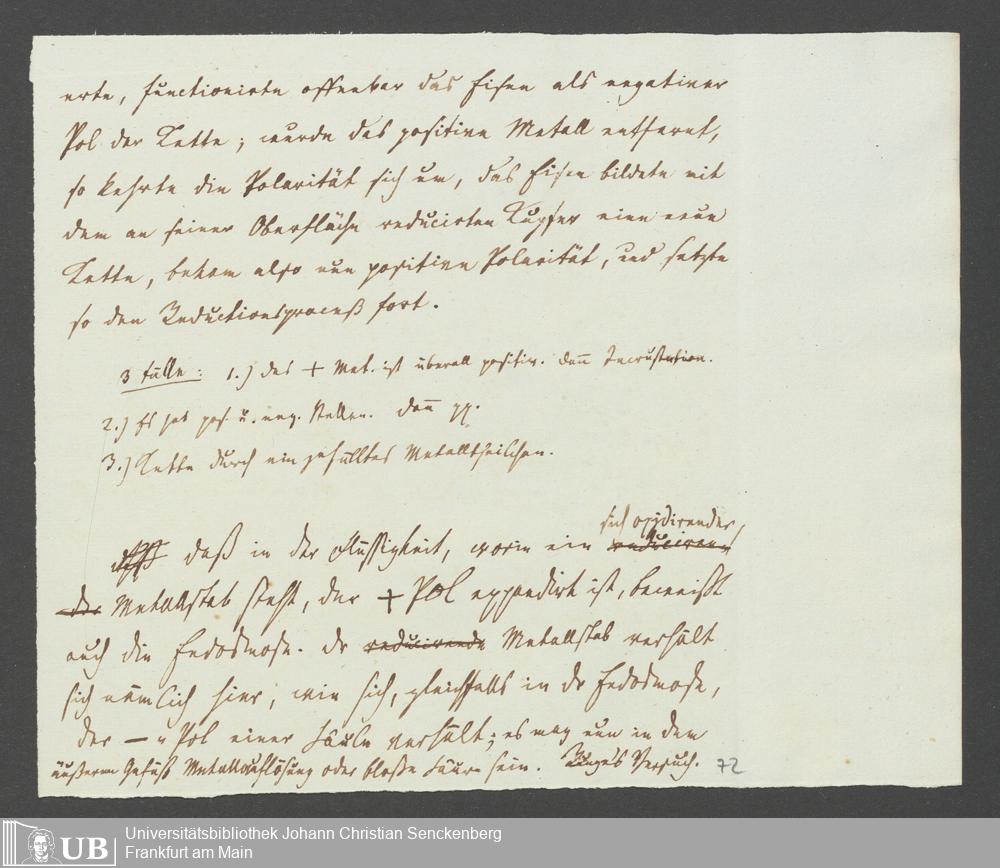 erte, functionirte offenbar das Eisen als negativer
Pol der Kette; wurde das positive Metall entfernt,
so kehrte die Polarität sich um, das Eisen bildete mit
dem an seiner Oberfläche reducirten Kupfer eine neue
Kette, bekam also nun positive Polarität, und setzte
so den Reductionsproceß fort.
3 Fälle: 1.) das + Met. ist überall positiv. dann Incrustation.
2.) Es hat pos. u. neg. Stellen. dann pp.
3.) Kette durch ein gefälltes Metalltheilchen.
sich oxydirender
daß in der Flüssigkeit, worin ein reducirend
der Metallstab steht, der + Pol ist, beweißt
auch die Endosmose. Dr reducirende Metallstab verhält
sich nämlich hier, wie sich, gleichfalls in dr Endosmose,
der – Pol einer Säule verhält; es mag nun in dem
äußeren Gefäß Metallauflösung oder bloße Säure sein. Versuch. 72
Universitätsbibliothek Johann Christian Senckenberg
Frankfurt am Main
UB